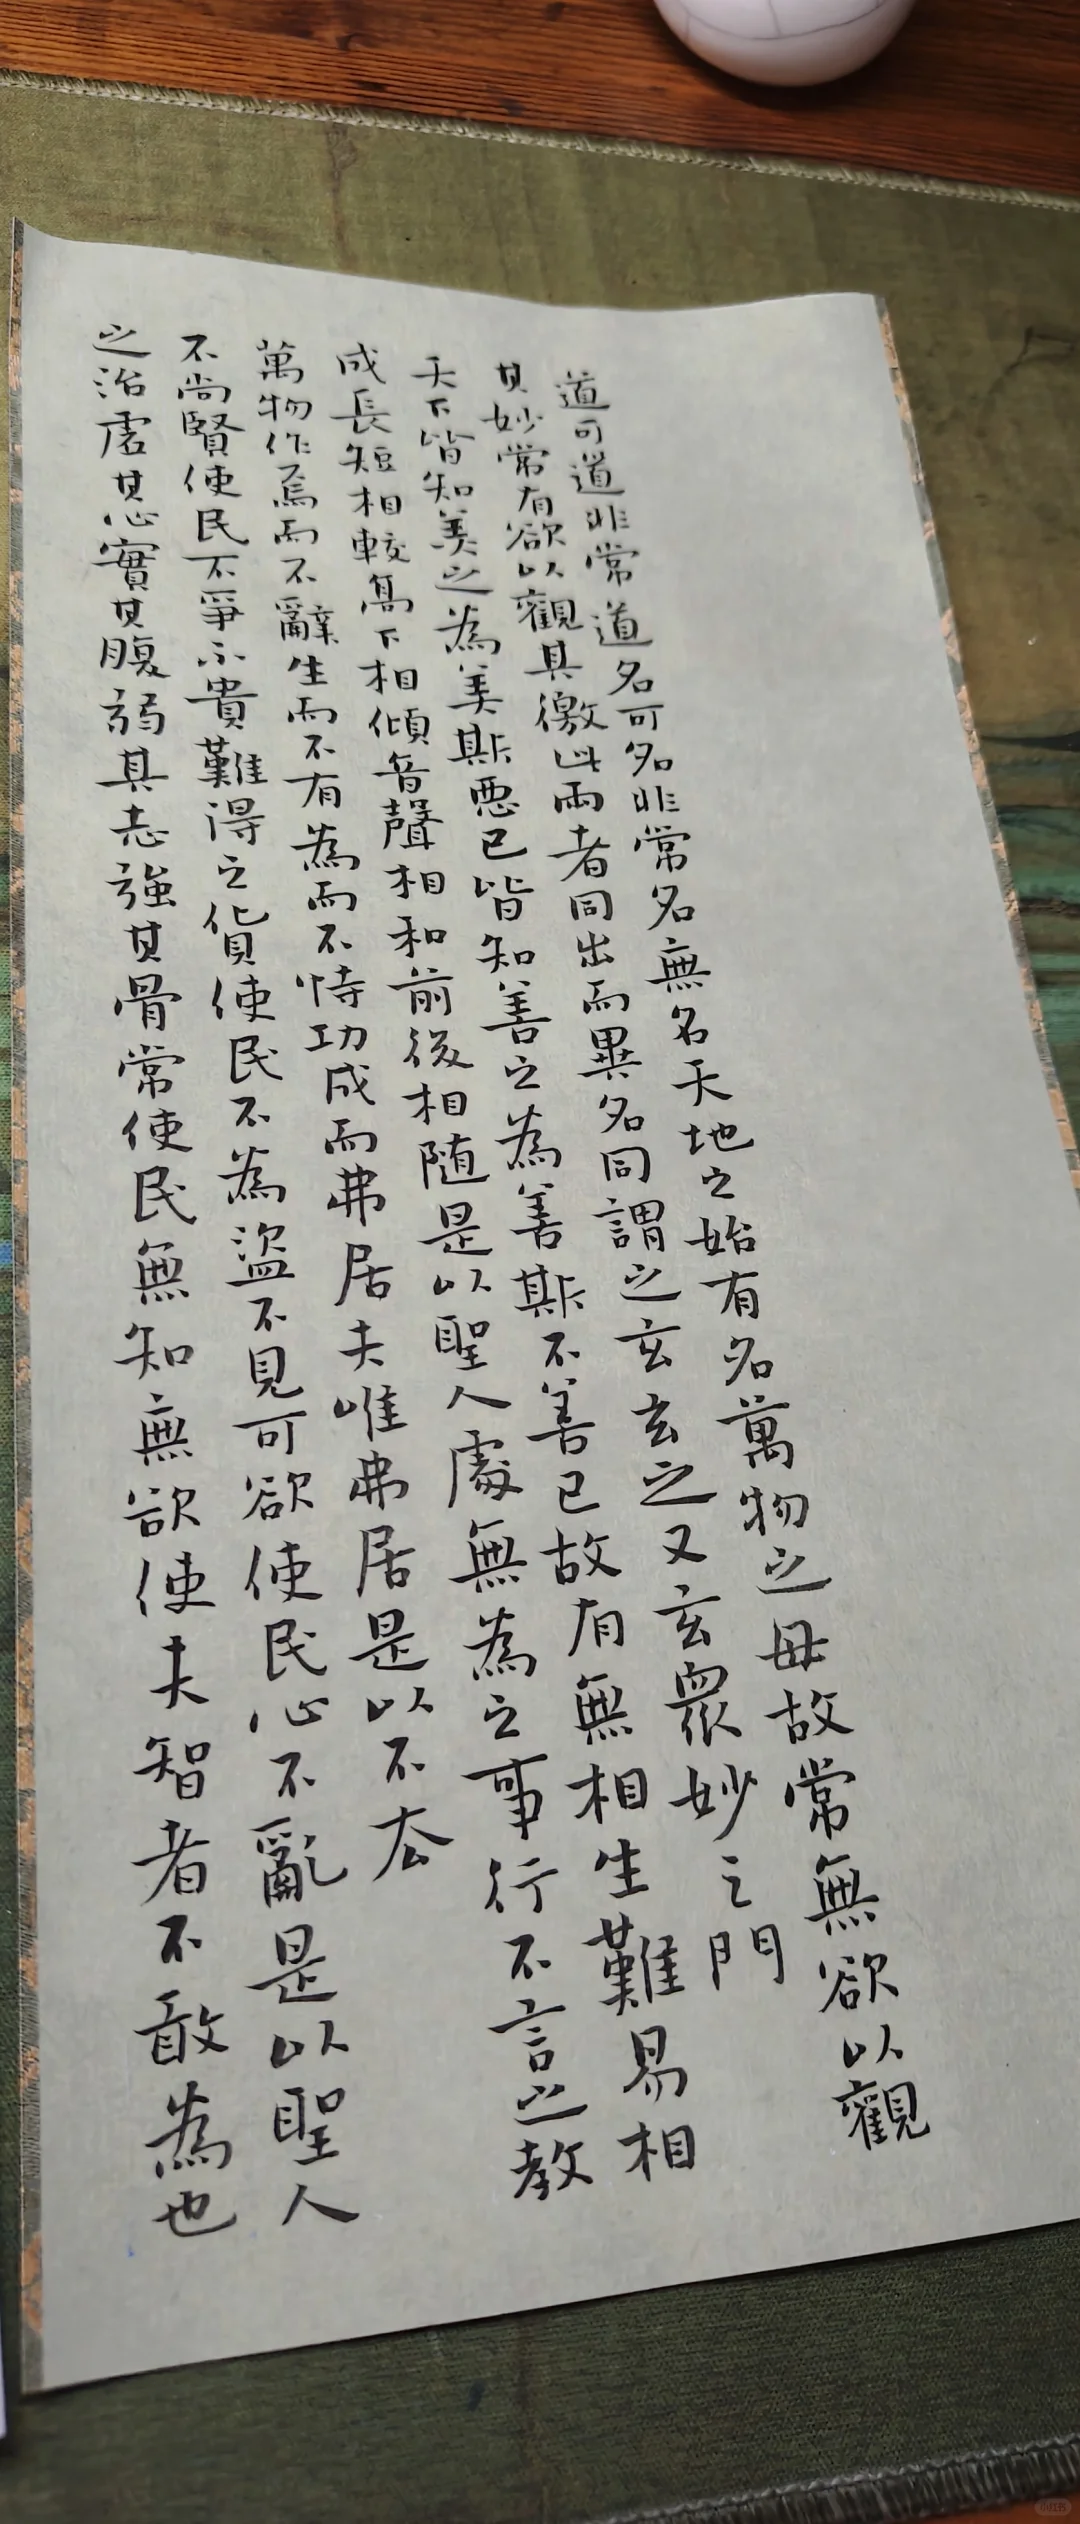 道可道非常道名可名非常名無名天地之始有名萬物之母故常無欲以觀
其妙常有欲以觀其徼此兩者同出而異名同謂之玄玄之又玄眾妙之門
天下皆知美之為美斯惡已皆知善之為善斯不善已故有無相生難易相
成長短相較高下相傾音聲相和前後相隨是以聖人處無為之事行不言之教
萬物作焉而不辭生而不有為而不恃功成而弗居夫唯弗居是以不去
不尚賢使民不爭不貴難得之貨使民不為盜不見可欲使民心不亂是以聖人
之治虛其心實其腹弱其志強其骨常使民無知無欲使夫智者不敢為也